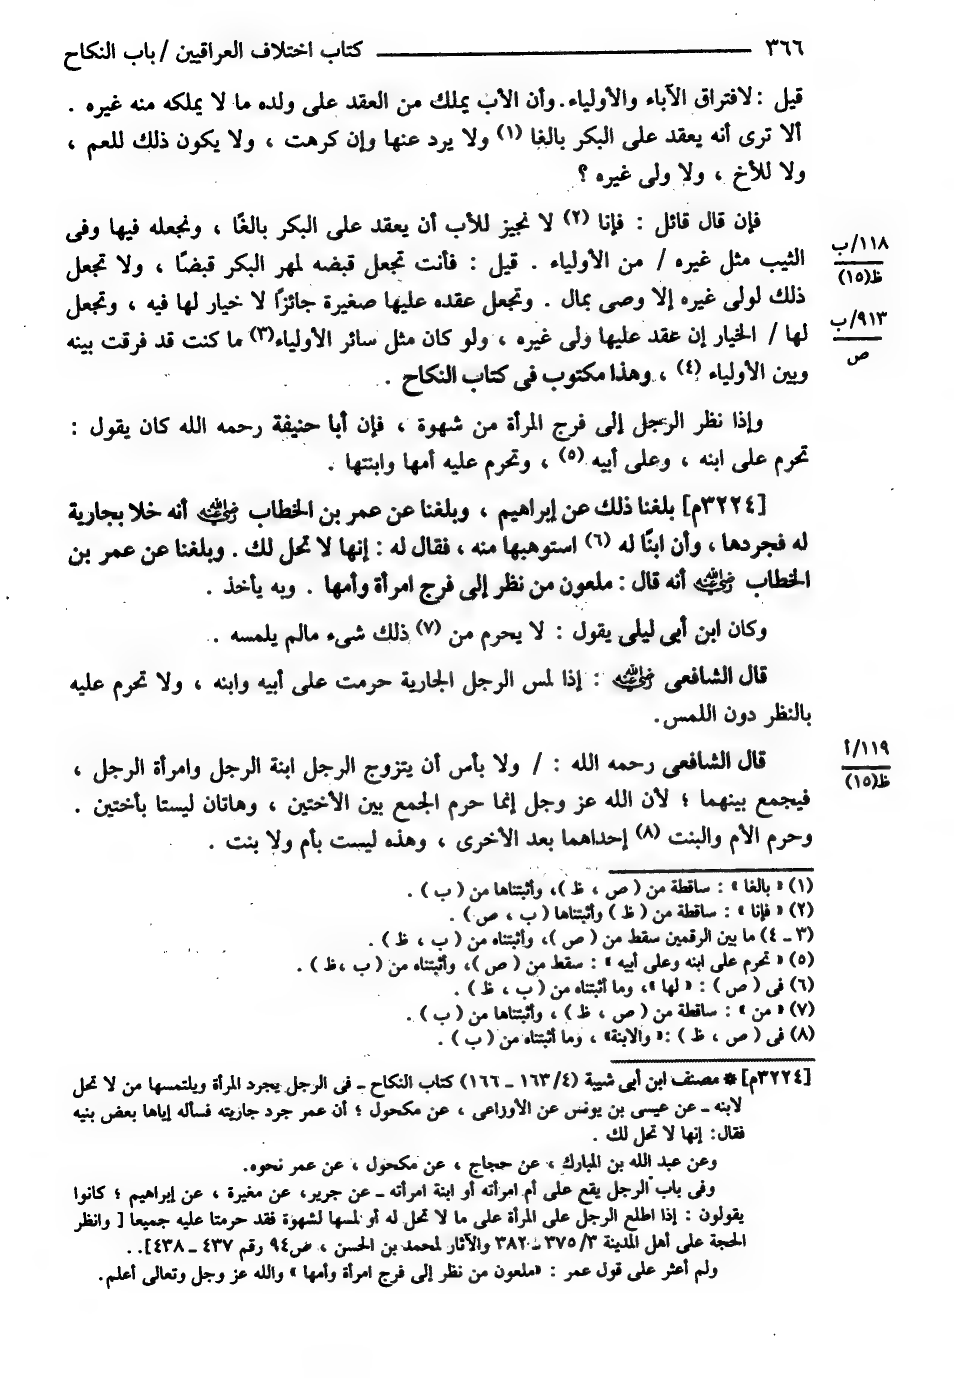 ٣٦٦ ــــــــــــــــــــ كتاب اختلاف العراقيين / باب النكاح
قيل : لافتراق الآباء والأولياء. وأن الأب يملك من العقد على ولده ما لا يملكه منه غيره .
ألا ترى أنه يعقد على البكر بالغا (١) ولا يرد عنها وإن كرهت ، ولا يكون ذلك للعم ،
ولا للأخ ، ولا ولى غيره ؟
فإن قال قائل : فإنا (٢) لا نجيز للأب أن يعقد على البكر بالغًا ، ونجعله فيها وفى
الثيب مثل غيره / من الأولياء . قيل : فأنت تجعل قبضه لمهر البكر قبضًا ، ولا تجعل
١١٨/ب
ظ(١٥)
ذلك لولى غيره إلا وصى بمال . وتجعل عقده عليها صغيرة جائزًا لا خيار لها فيه ، وتجعل
لها / الخيار إن عقد عليها ولى غيره ، ولو كان مثل سائر الأولياء(٣) ما كنت قد فرقت بينه
٩١٣/ب
ص
وبين الأولياء (٤) ، وهذا مكتوب فى كتاب النكاح .
وإذا نظر الرجل إلى فرج المرأة من شهوة ، فإن أبا حنيفة رحمه الله كان يقول :
تحرم على ابنه ، وعلى أبيه (٥) ، وتحرم عليه أمها وابنتها .
[٣٢٢٤م] بلغنا ذلك عن إبراهيم ، وبلغنا عن عمر بن الخطاب رضي الله عنه أنه خلا بجارية
له فجردها ، وأن ابنًا له (٦) استوهبها منه ، فقال له : إنها لا تحل لك . وبلغنا عن عمر بن
الخطاب رضي الله عنه أنه قال : ملعون من نظر إلى فرج امرأة وأمها . وبه يأخذ .
وكان ابن أبى ليلى يقول : لا يحرم من (٧) ذلك شىء مالم يلمسه .
قال الشافعى رضي الله عنه : إذا لمس الرجل الجارية حرمت على أبيه وابنه ، ولا تحرم عليه
بالنظر دون اللمس.
قال الشافعى رحمه الله : / ولا بأس أن يتزوج الرجل ابنة الرجل وامرأة الرجل ،
١١٩/أ
ظ(١٥)
فيجمع بينهما ؛ لأن الله عز وجل إنما حرم الجمع بين الأختين ، وهاتان ليستا بأختين .
وحرم الأم والبنت (٨) إحداهما بعد الأخرى ، وهذه ليست بأم ولا بنت .
(١) « بالغا » : ساقطة من ( ص ، ظ )، وأثبتناها من ( ب ) .
(٢) « فإنا » : ساقطة من ( ظ ) وأثبتناها ( ب ، ص ) .
(٣ ـ ٤) ما بين الرقمين سقط من ( ص )، وأثبتناه من ( ب ، ظ ) .
(٥) « تحرم على ابنه وعلى أبيه » : سقط من ( ص )، وأثبتناه من ( ب ،ظ ) .
(٦) فى ( ص ) : « لها »، وما أثبتناه من ( ب ، ظ ) .
(٧) « من » : ساقطة من ( ص ، ظ ) ، وأثبتناها من ( ب ) .
(٨) فى ( ص ، ظ ) :« والابنة» ، وما أثبتناه من ( ب ) .
[٣٢٢٤م] * مصنف ابن أبى شيبة (٤/ ١٦٣ ـ ١٦٦) كتاب النكاح ـ فى الرجل يجرد المرأة ويلتمسها من لا تحل
لابنه ـ عن عيسى بن يونس عن الأوزاعى ، عن مكحول ؛ أن عمر جرد جاريته فسأله إياها بعض بنيه
فقال: إنها لا تحل لك .
وعن عبد الله بن المبارك ، عن حجاج ، عن مكحول ، عن عمر نحوه.
وفى باب الرجل يقع على أم امرأته أو ابنة امرأته ـ عن جرير، عن مغيرة ، عن إبراهيم ؛ كانوا
يقولون : إذا اطلع الرجل على المرأة على ما لا تحل له أو لمسها لشهوة فقد حرمتا عليه جميعا [ وانظر
الحجة على أهل المدينة ٣/ ٣٧٥ ـ ٣٨٢ والآثار لمحمد بن الحسن ، ص٩٤ رقم ٤٣٧ ـ ٤٣٨]. .
ولم أعثر على قول عمر : «ملعون من نظر إلى فرج امرأة وأمها » والله عز وجل وتعالى أعلم.